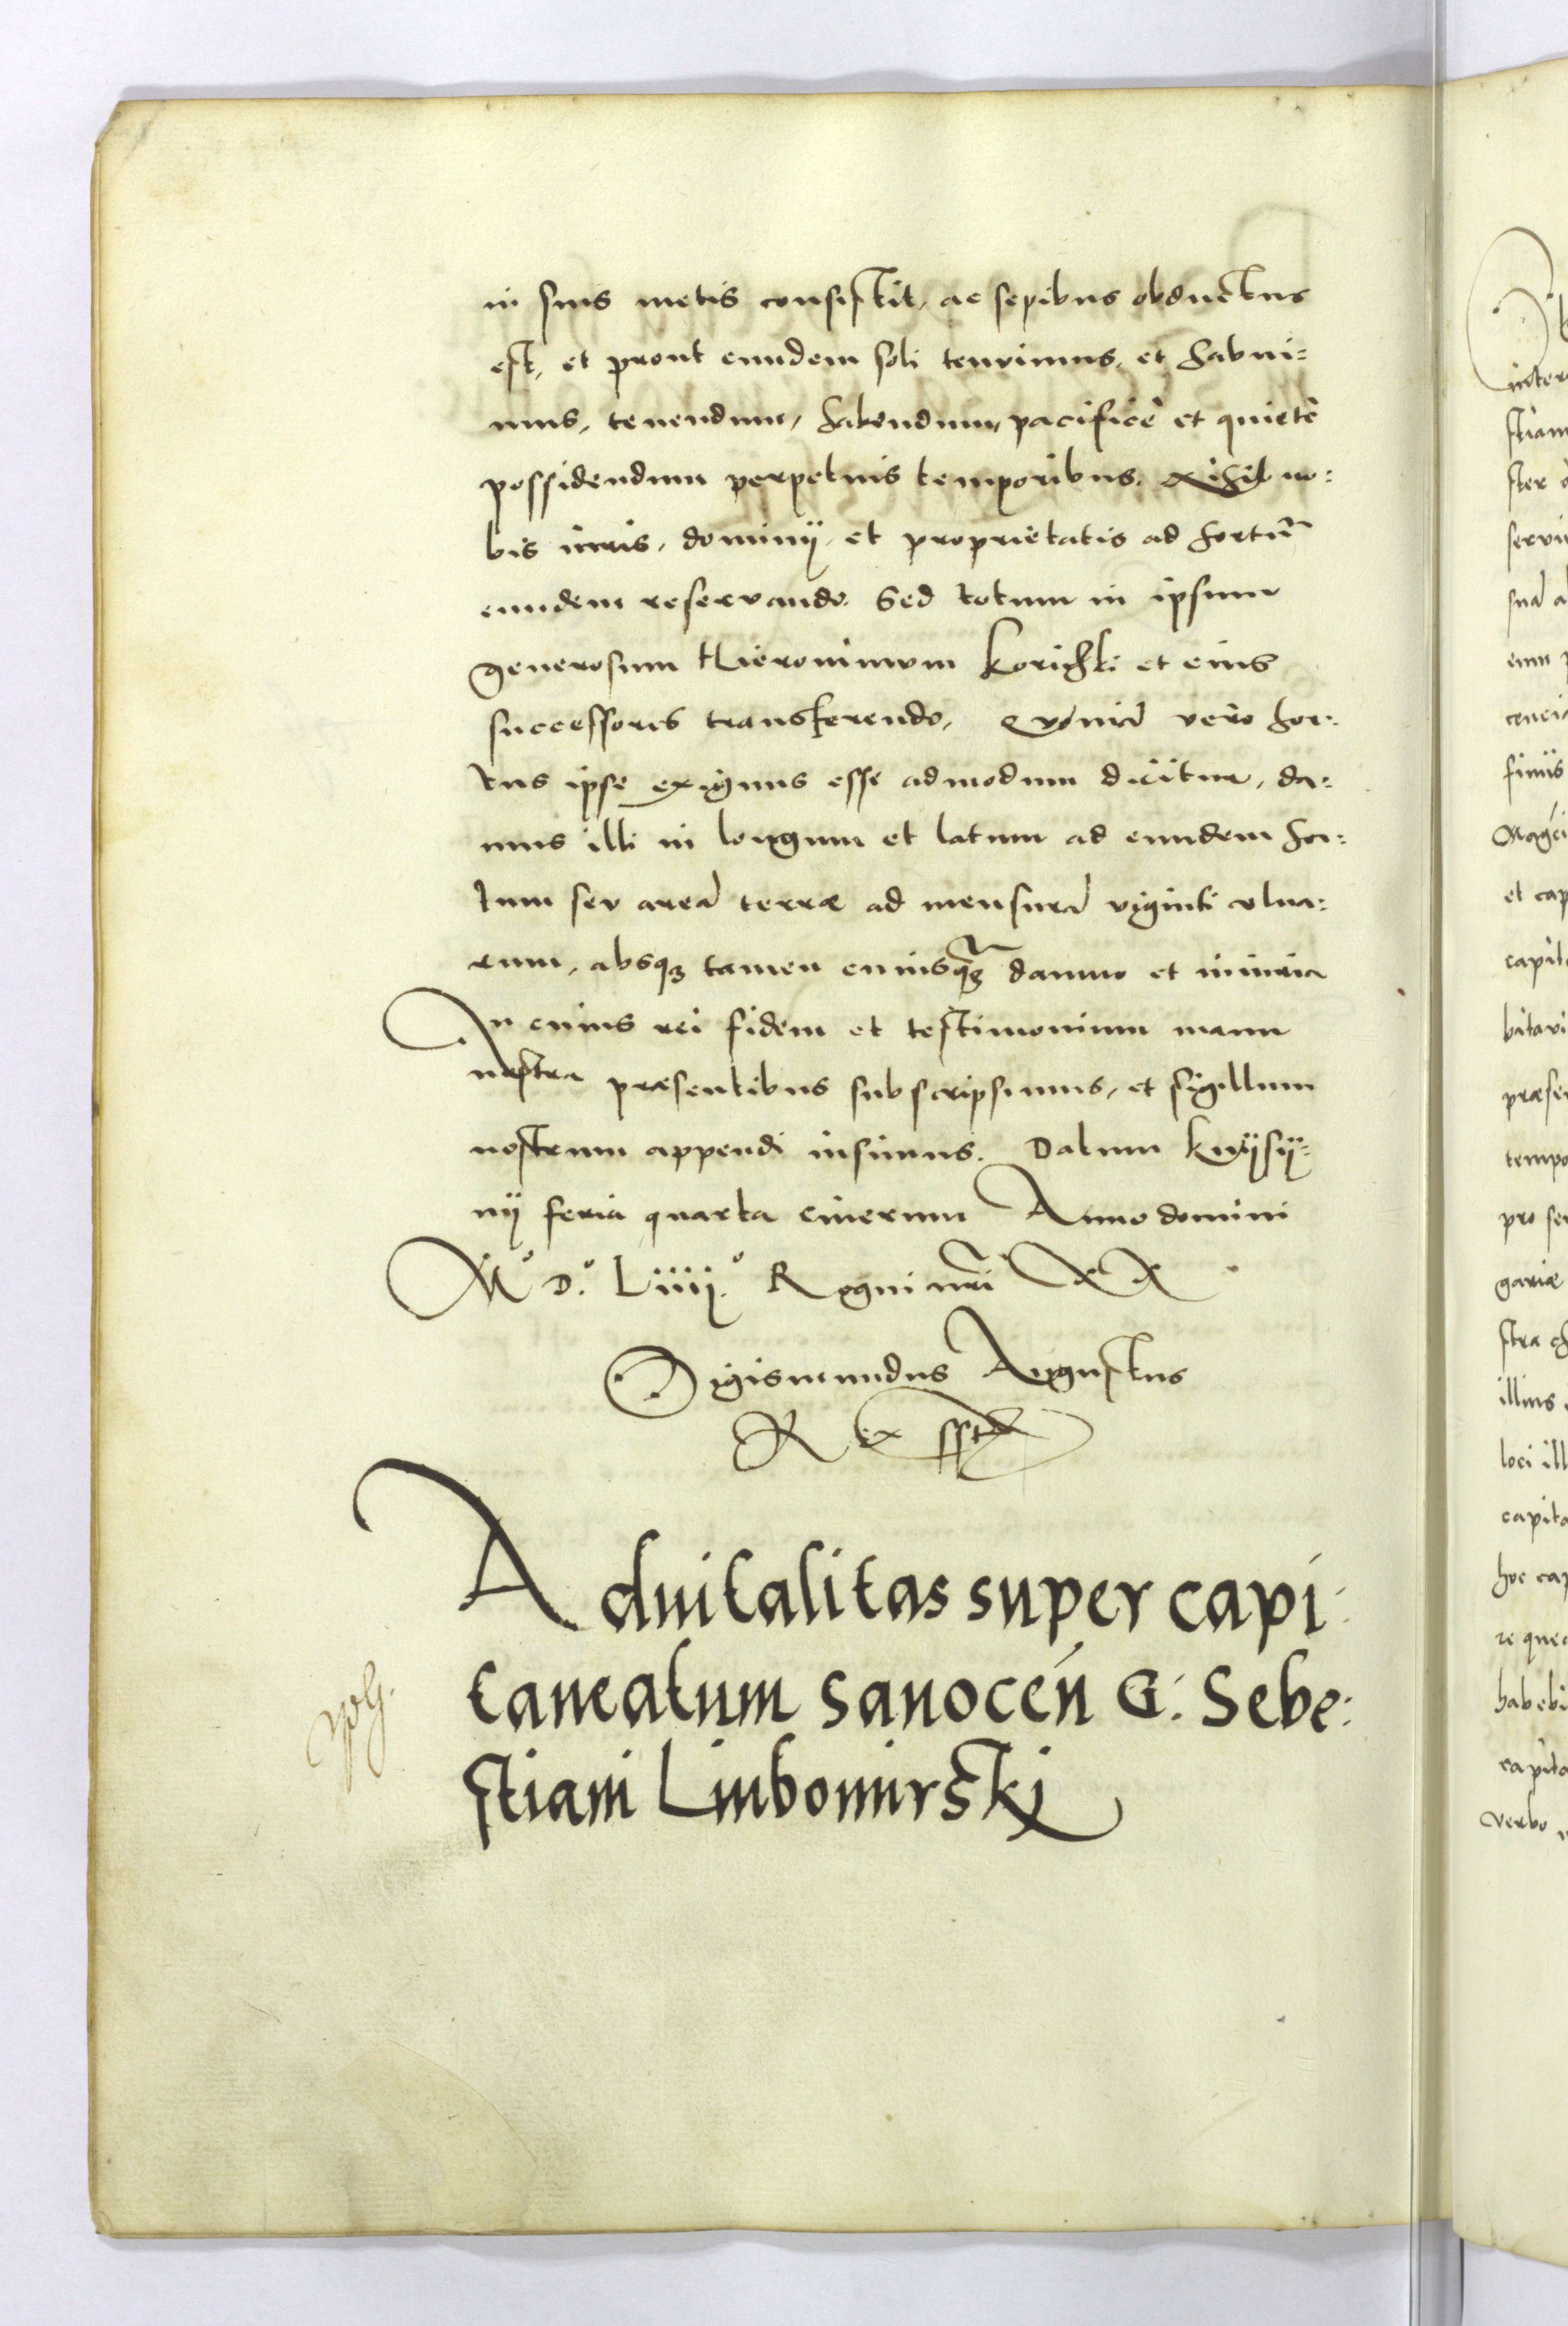 in suis metis consistit, ac sepibus obductus
est, et prout eundem soli tenuimus, et habui=
mus, tenendum, habendum, pacificè et quietè
possidendum perpetuis temporibus. Nihil no=
bis iuris, dominij, et proprietatis ad hortũ
eundem reservando. Sed totum in ipsum
generosum Hieronimum Korichki et eius
successores transferendo. Quoniã vero hor=
tus ipse exiguus esse admodum dicitur, da=
mus illi in longum et latum ad eundem hor=
tum seu areã terræ ad mensurã viginti ulna=
rum, absq3 tamen cuiusq3 damno et iniuria
In cuius rei fidem et testimonium manu
nostra præsentibus subscripsimus, et sigillum
nostrum appendi iussimus. Datum Knÿsÿ=
nij feria quarta cinerum Anno domini
Mº Dº Liiijº Regni nr̃i XX
Sigismundus Augustus
Rex sst
Advitalitas super capi
taneatum Sanoceñ G: Sebe:
stiani Liubomirski
inter
stiam
ster
servi
suã
eum
finiis
et cap
capita
præse
tempo
pro se
gariæ
stra
illius
loci ill
capita
hoc cap
re que
habebi
capita
verbo